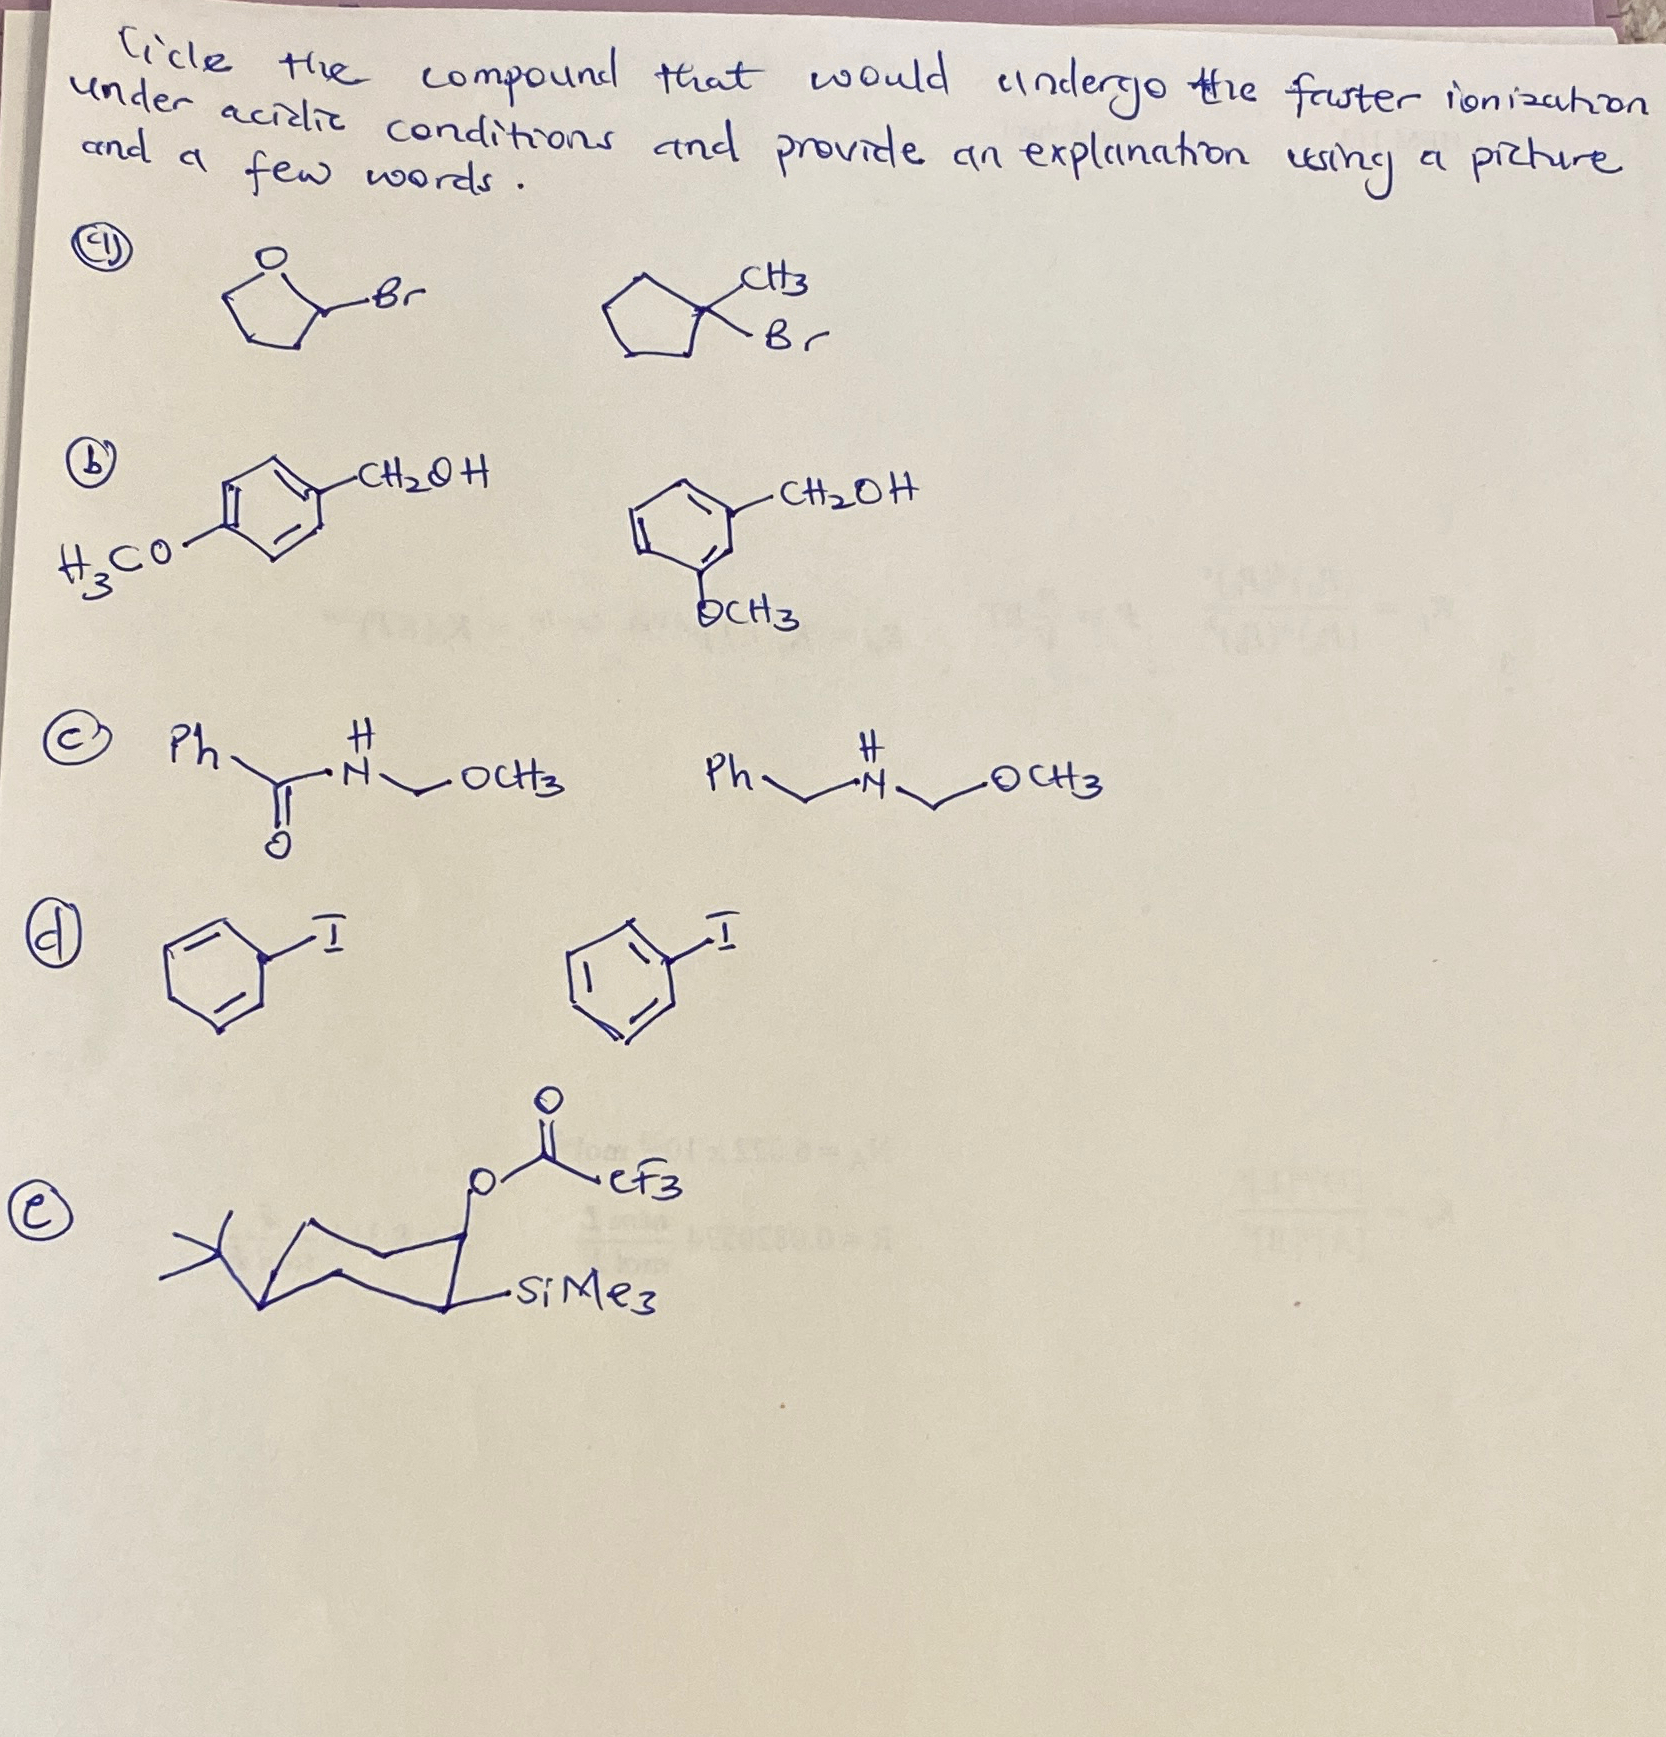 Cicle the compound that would undergo the faster ionization
under acidic conditions and provide an explanation using a picture
and a few words.
a
O
Br
CH3
Br
b
CH2OH
H3CO
CH2OH
OCH3
c
Ph
H
N
OCH3
O
Ph
H
N
OCH3
d
I
I
e
O
O
CF3
SiMe3